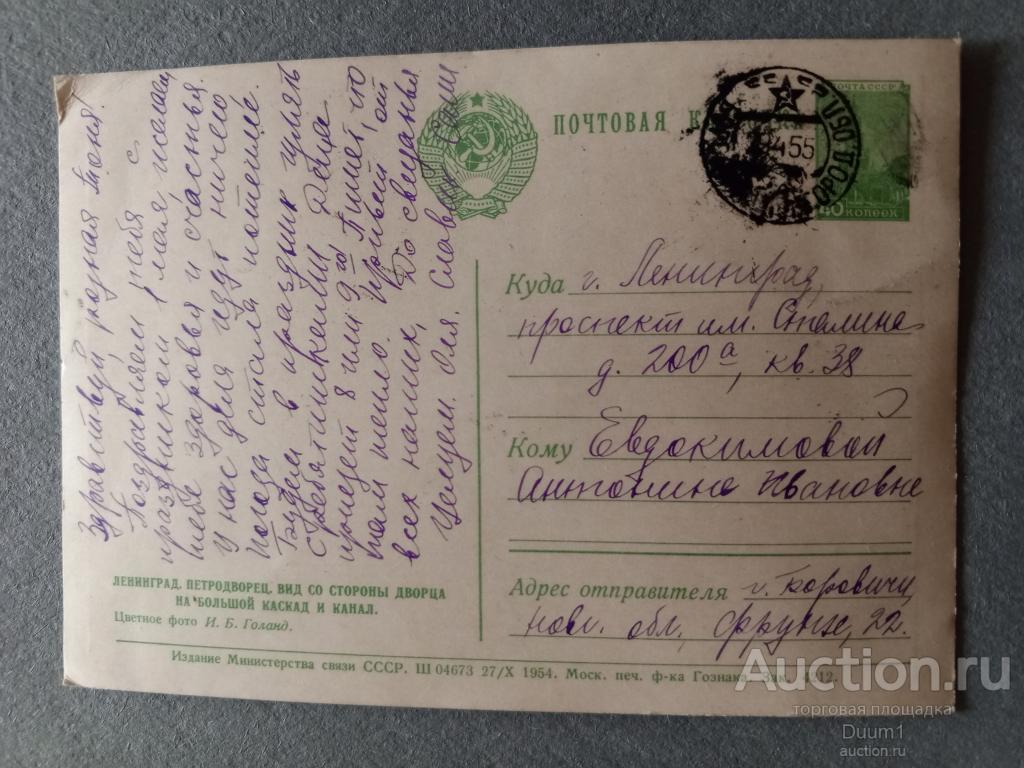 Здравствуй, родная Тоня.
Поздравляем тебя с
праздником 1 мая желаем
тебе здоровья и счастья.
У нас дела идут ничего
Погода стала потепле.
Будем в праздник гулять
с ребятишками. Деца
приедет 8 или 9го. Пишет, что
там тепло. Привет от
всех наших, До свиданья
Целуем. Оля, Слава,
ПОЧТОВАЯ К
ПОЧТА СССР
40 КОПЕЕК
4 55
Куда г. Ленинград,
проспект им. Сталина
д. 200а, кв. 38
Кому Евдокимовой
Антонине Ивановне
Адрес отправителя г. Боровичи,
Новг. обл, Фрунзе, 22.
ЛЕНИНГРАД. ПЕТРОДВОРЕЦ. ВИД СО СТОРОНЫ ДВОРЦА
НА БОЛЬШОЙ КАСКАД И КАНАЛ.
Цветное фото И. Б. Голанд.
Издание Министерства связи СССР. Ш 04673 27/X 1954. Моск. печ. ф-ка Гознака. Зак. 4212.
Auction.ru
торговая площадка
Duum1
auction.ru